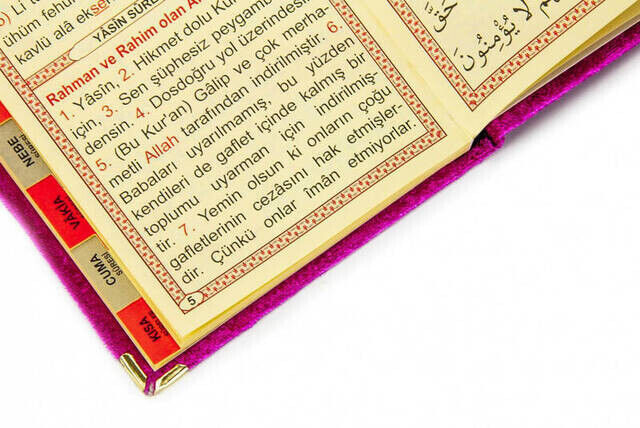 5) Li t
ühüm fehu
kavlü alâ ekse
YÂSİN SÛR
Rahman ve Rahim olan A
1. Yâsîn. 2. Hikmet dolu Kur
için, 3. Sen şüphesiz peygamb
densin. 4. Dosdoğru yol üzerindesi
5. (Bu Kur'an) Gâlip ve çok merha-
metli Allah tarafından indirilmiştir. 6.
Babaları uyarılmamış, bu yüzden
kendileri de gaflet içinde kalmış bir
toplumu uyarman için indirilmiş-
tir. 7. Yemin olsun ki onların çoğu
gafletlerinin cezâsını hak etmişler-
dir. Çünkü onlar îmân etmiyorlar.
5
NEBE
SÛRESİ
VÂKIA
CUMA
SÛRESİ
KISA
حَقَّ
لَا يُؤْمِنُونَ